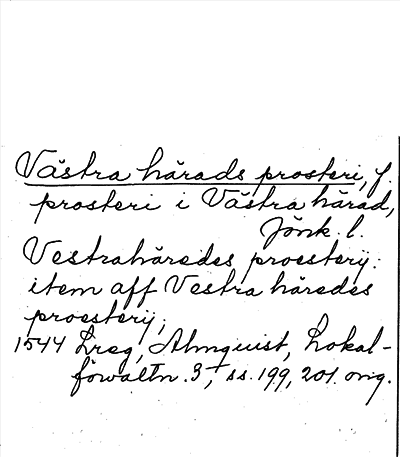 Västra härads prosteri, f.
prosteri i Västra härad,
Jönk. l.
Vestrahäredes proesterij:
item aff Vestra häredes
proesterij,
1544 Lreg, Almquist, Lokal-
förvaltn. 3, ss. 199, 201. orig.